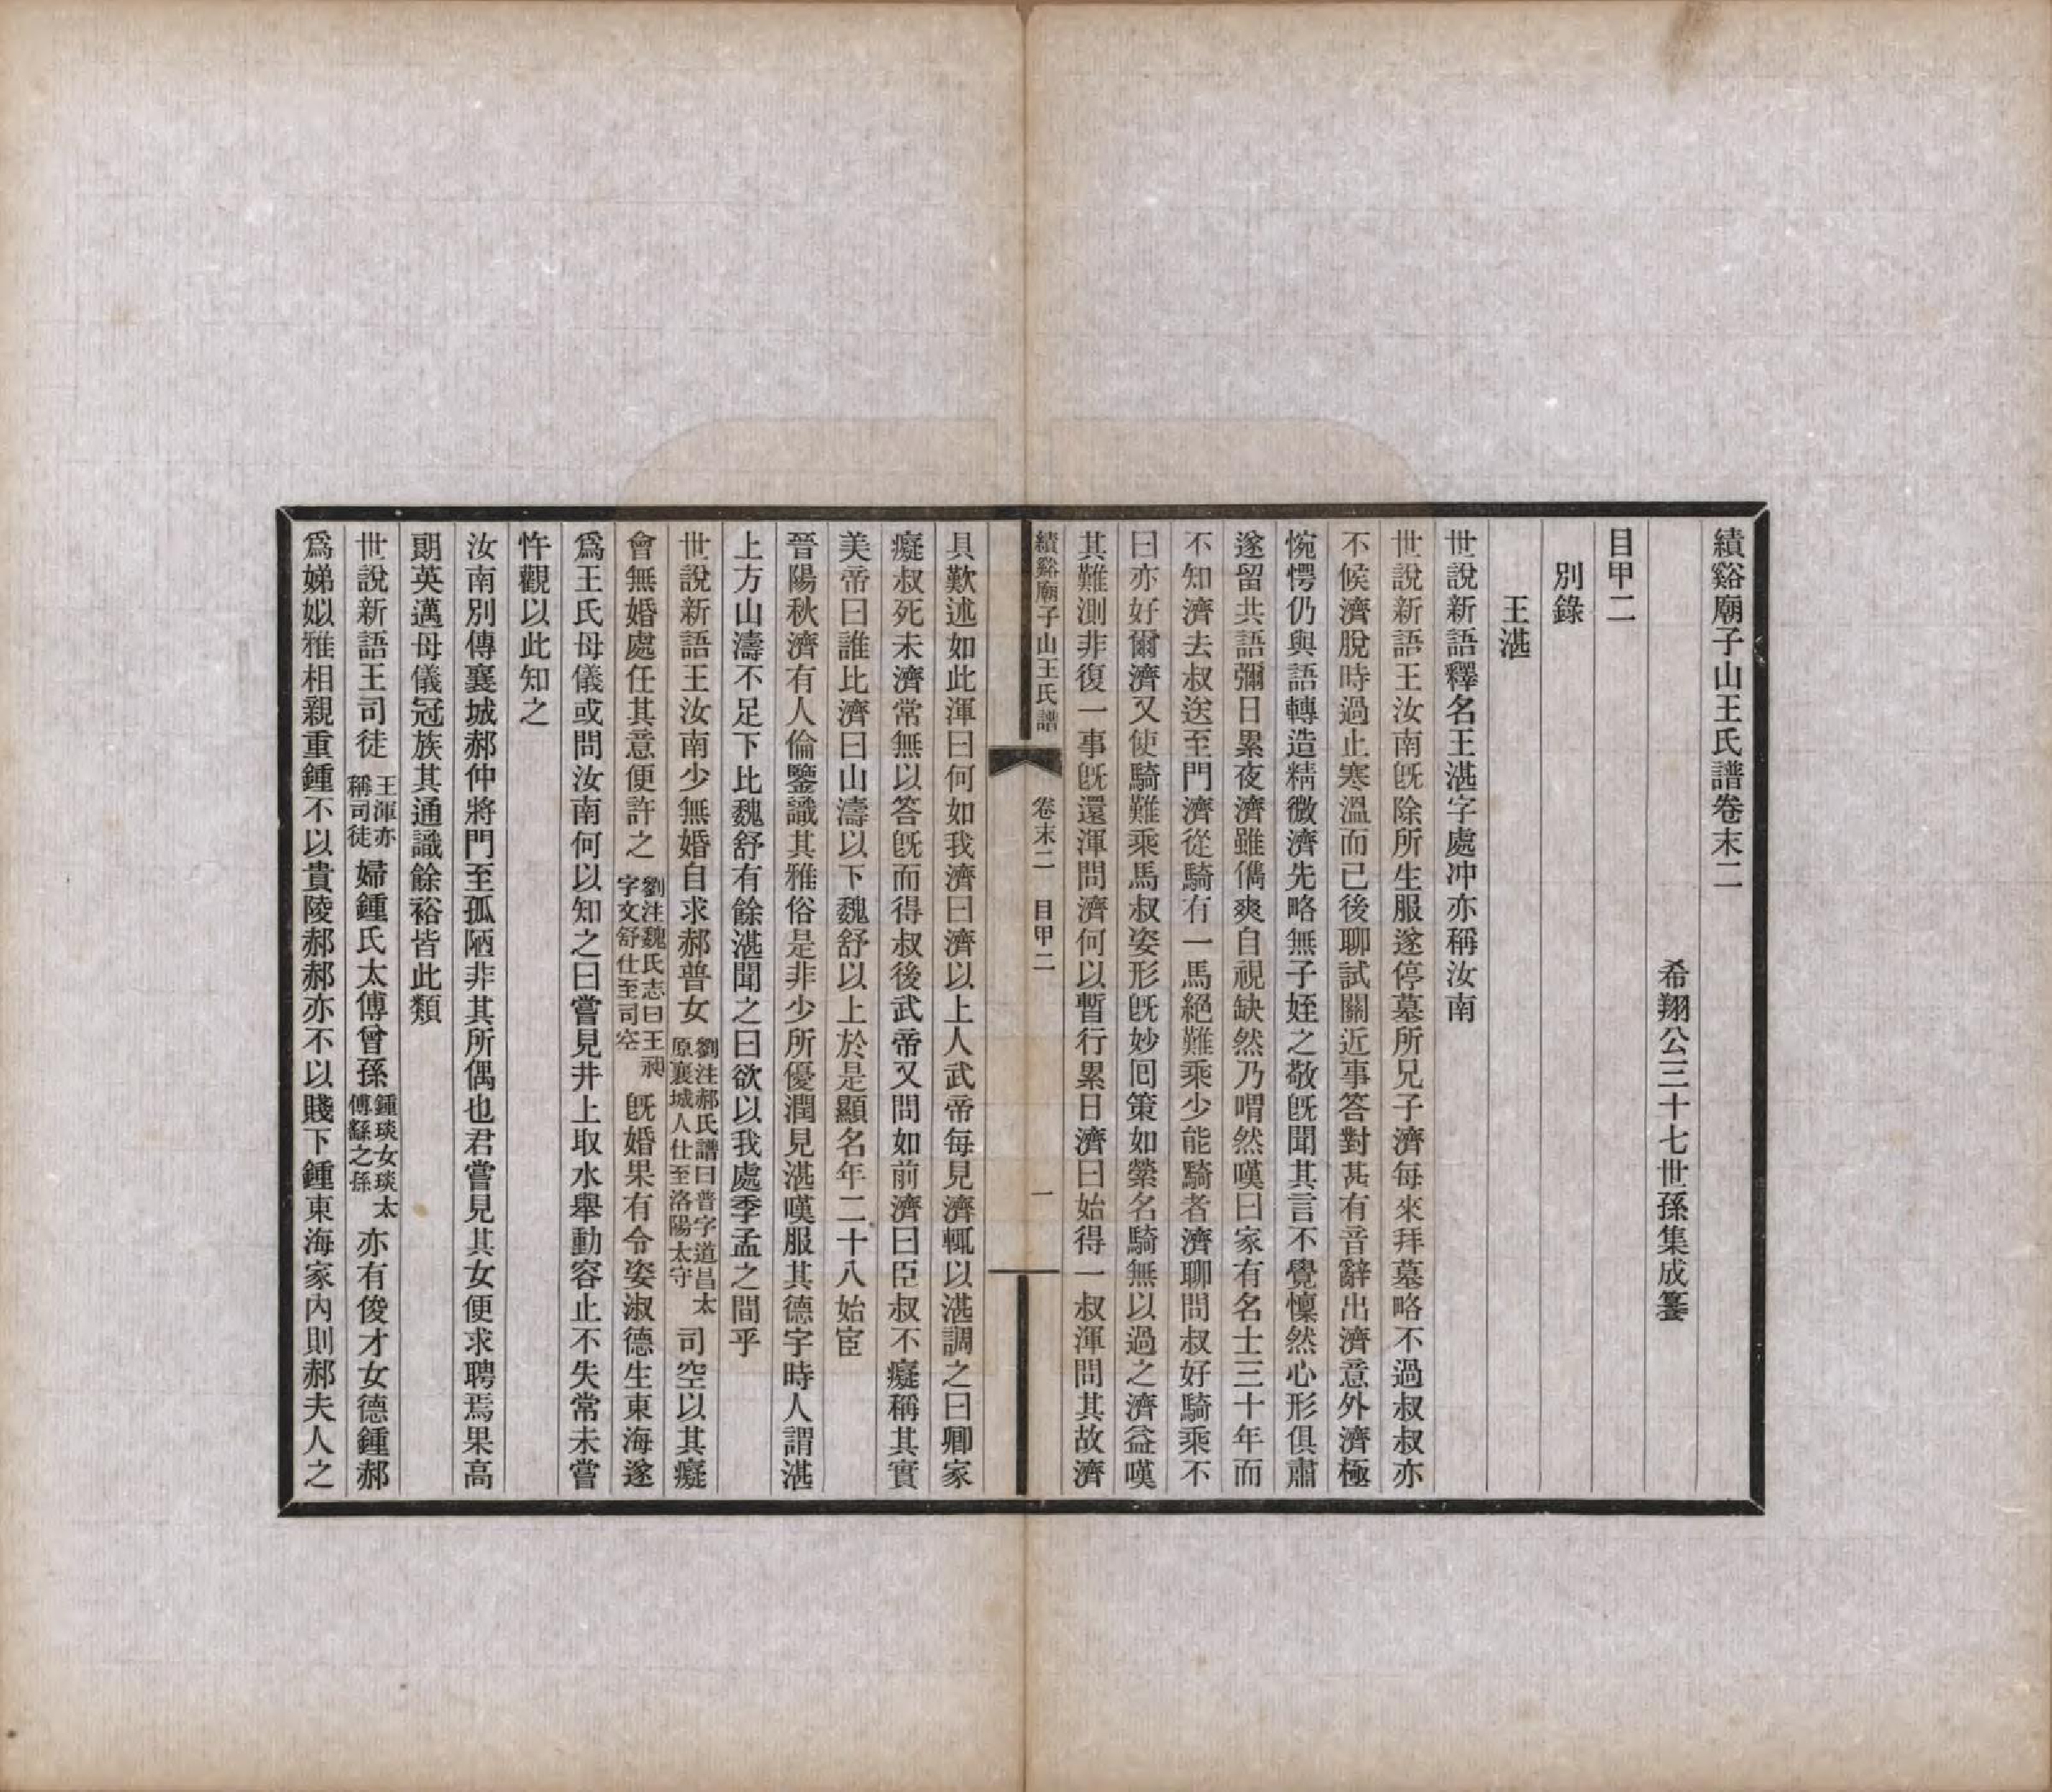 績谿廟子山王氏譜卷末二
希翔公三十七世孫集成篹
目甲二
別錄
王湛
世說新語釋名王湛字處冲亦稱汝南
世說新語王汝南旣除所生服遂停墓所兄子濟每來拜墓略不過叔叔亦
不候濟脫時過止寒溫而已後聊試關近事答對甚有音辭出濟意外濟極
惋愕仍與語轉造精微濟先略無子姪之敬旣聞其言不覺懍然心形俱肅
遂留共語彌日累夜濟雖儁爽自視缺然乃喟然嘆曰家有名士三十年而
不知濟去叔送至門濟從騎有一馬絕難乘少能騎者濟聊問叔好騎乘不
曰亦好爾濟又使騎難乘馬叔姿形旣妙回策如縈名騎無以過之濟益嘆
其難測非復一事旣還渾問濟何以暫行累日濟曰始得一叔渾問其故濟
績谿廟子山王氏譜 卷末二 目甲二 一
具歎述如此渾曰何如我濟曰濟以上人武帝每見濟輒以湛調之曰卿家
癡叔死未濟常無以答旣而得叔後武帝又問如前濟曰臣叔不癡稱其實
美帝曰誰比濟曰山濤以下魏舒以上於是顯名年二十八始宦
晉陽秋濟有人倫鑒識其雅俗是非少所優潤見湛嘆服其德宇時人謂湛
上方山濤不足下比魏舒有餘湛聞之曰欲以我處季孟之間乎
世說新語王汝南少無婚自求郝普女劉注郝氏譜曰普字道昌太原襄城人仕至洛陽太守司空以其癡
會無婚處任其意便許之劉注魏氏志曰王昶字文舒仕至司空旣婚果有令姿淑德生東海遂
爲王氏母儀或問汝南何以知之曰嘗見井上取水舉動容止不失常未嘗
忤觀以此知之
汝南別傳襄城郝仲將門至孤陋非其所偶也君嘗見其女便求聘焉果高
朗英邁母儀冠族其通識餘裕皆此類
世說新語王司徒王渾亦稱司徒婦鍾氏太傅曾孫鍾琰女琰太傅繇之孫亦有俊才女德鍾郝
爲娣姒雅相親重鍾不以貴陵郝郝亦不以賤下鍾東海家內則郝夫人之